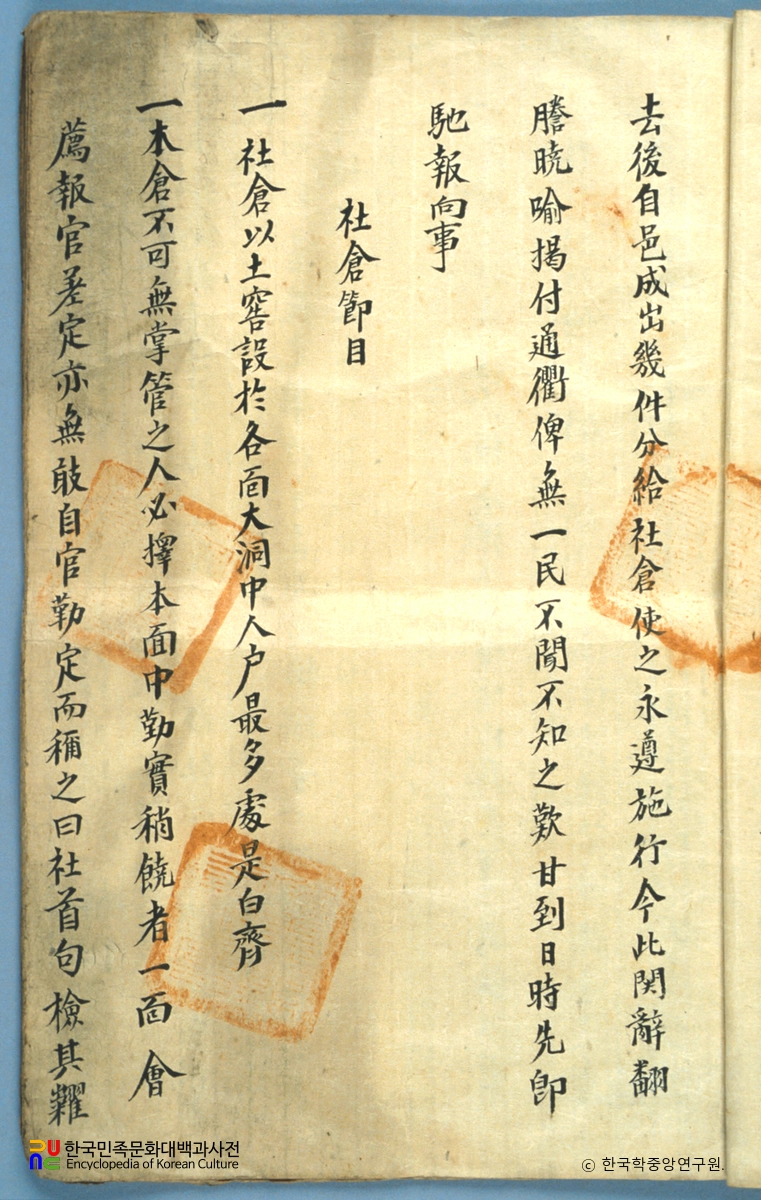 去後自邑成出幾件分給社倉使之永遵施行今此関辭翻
謄曉喻揭付通衢俾無一民不聞不知之歎甘到日時先卽
馳報向事
社倉節目
一 社倉以土窖設於各面大洞中人户最多處是白齊
一本倉不可無掌管之人必擇本面中勤實稍饒者一面會
薦報官差定亦無敢自官勤定而稱之曰社首句檢其糶
한국민족문화대백과사전
Encyclopedia of Korean Culture
© 한국학중앙연구원.